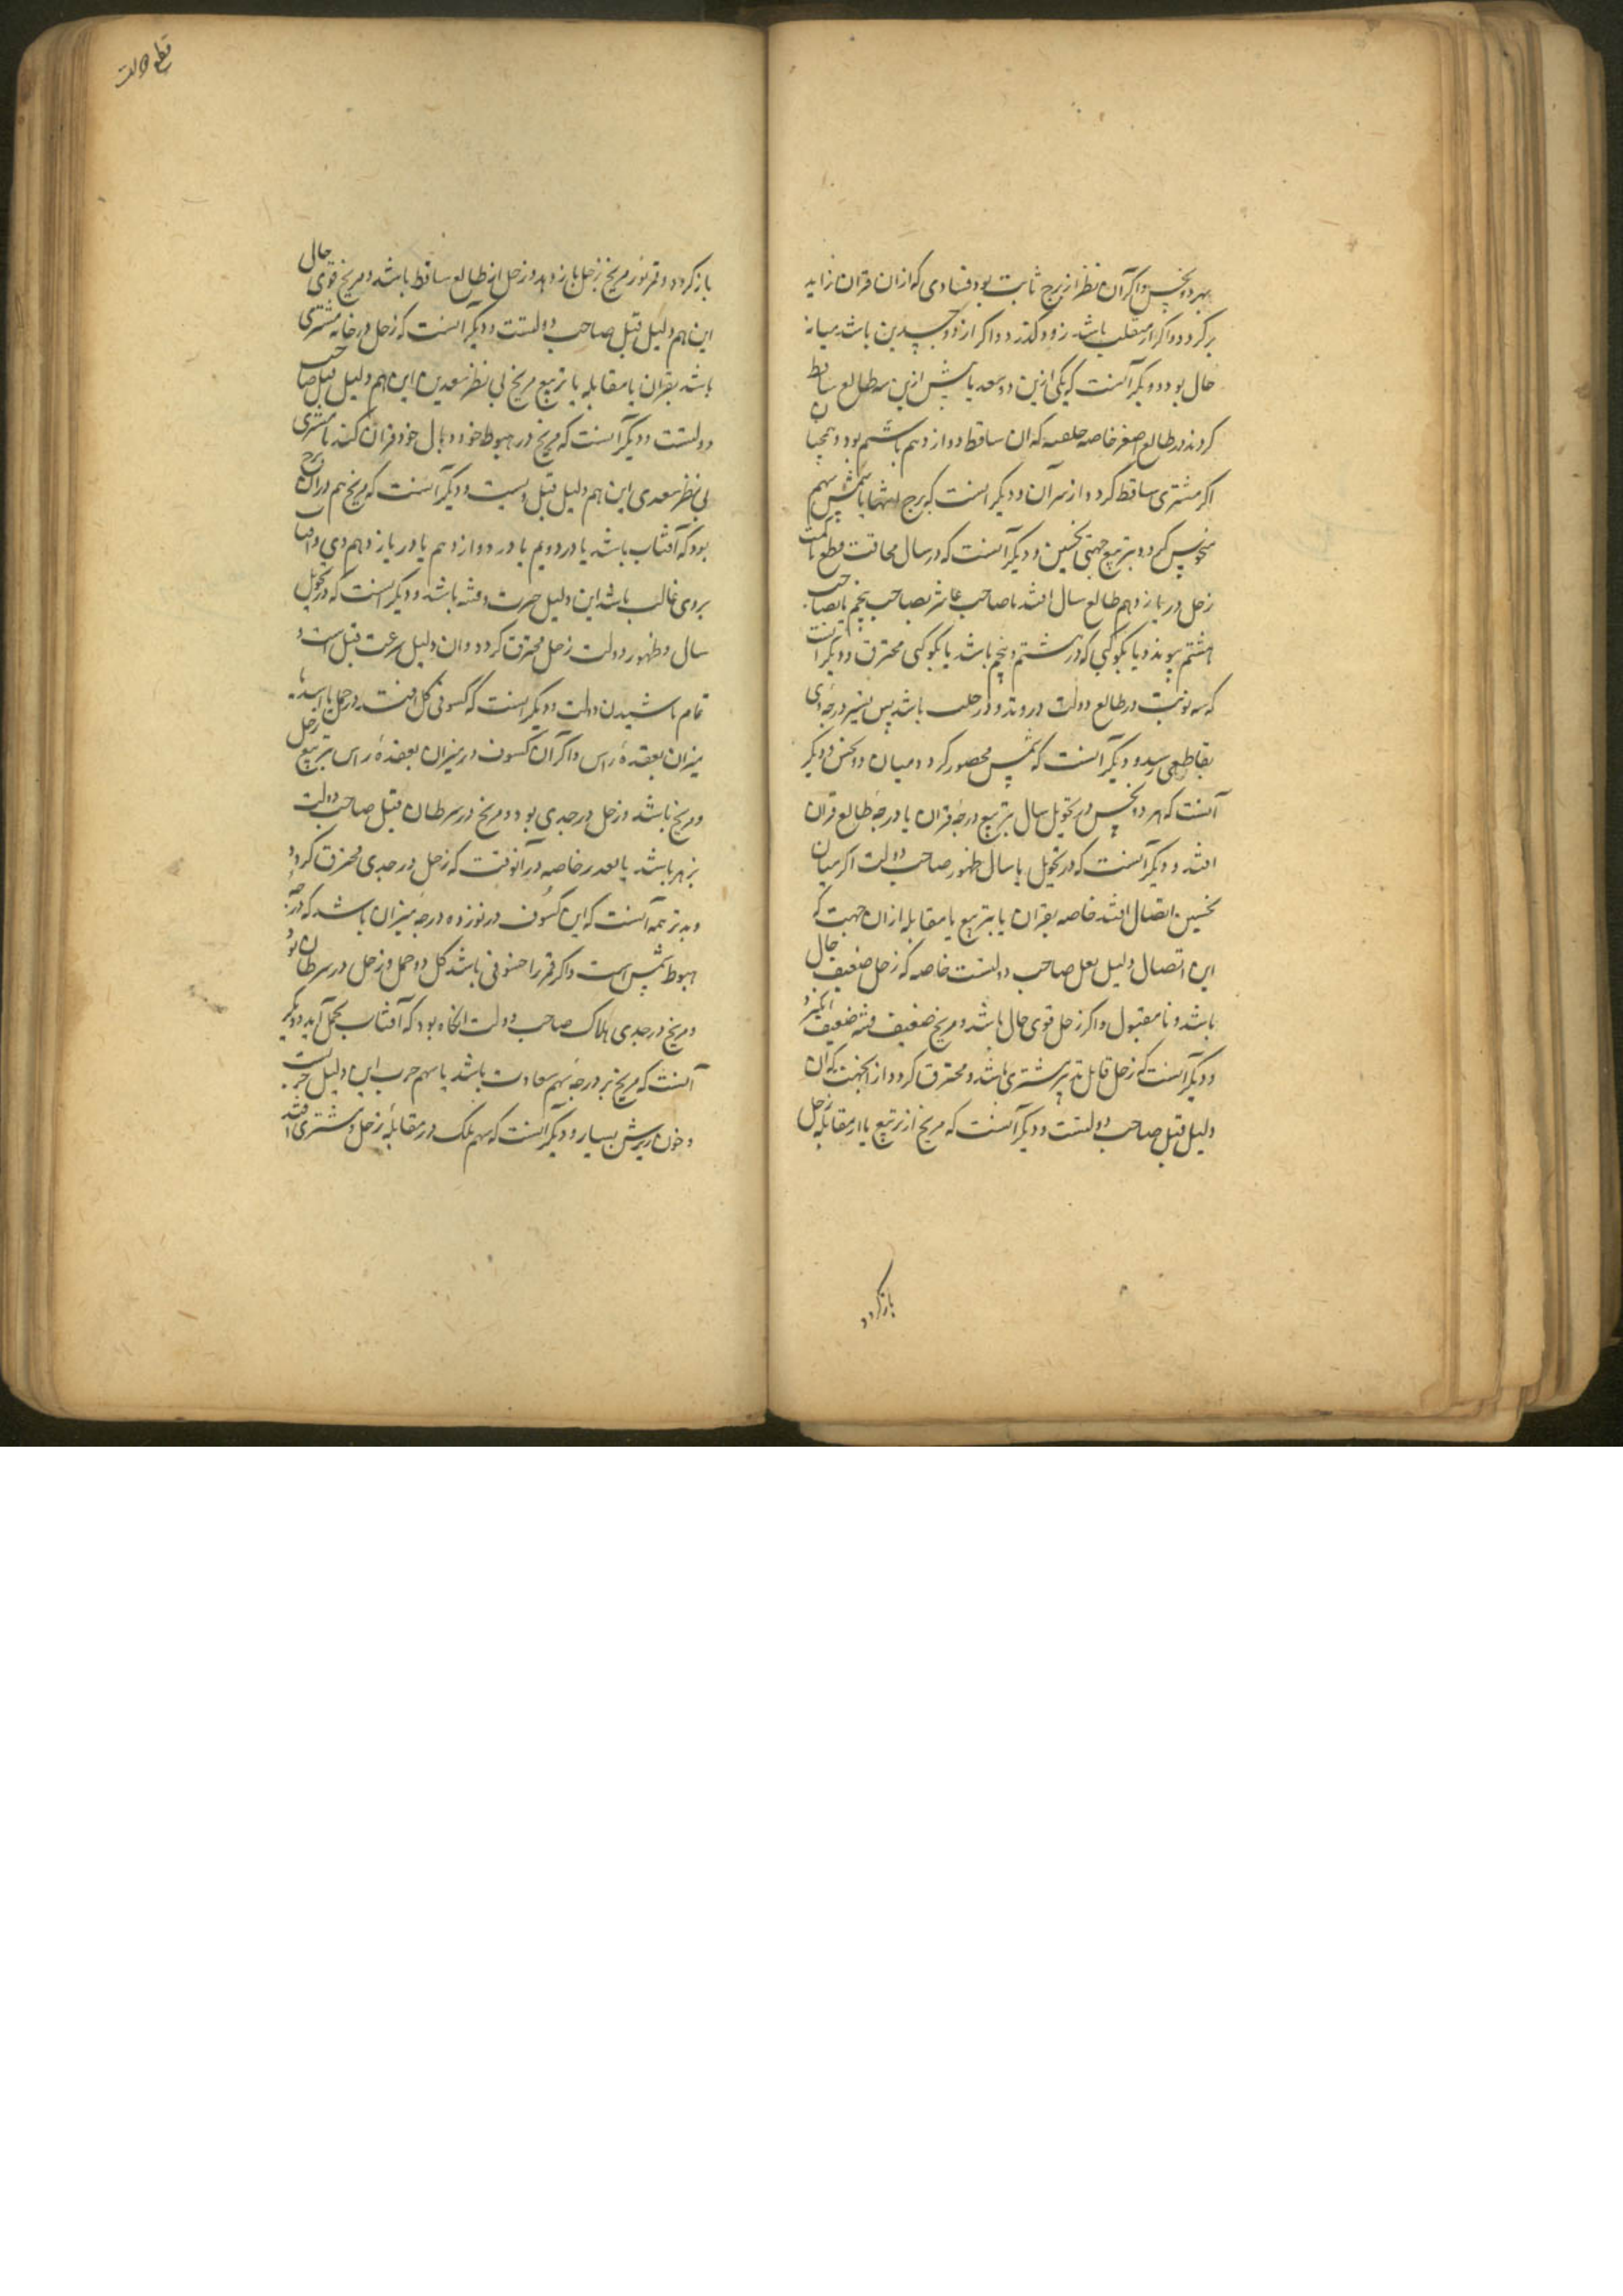 بهر دو نحس و اکر آن نظر از برج ثابت بود فسادی که ازان قران زاید
بر کردد و اکر از منقلب باشد زود کذرد و اکر از ذو جسدین باشد میانه
حال بود و دیکر آنست که یکی ازین دو سعد یا پیش ازین سه طالع ساقط
کردند در طالع اصغر خاصه که ان ساقط دوازدهم یا ششم بود و همچنان
اکر مشتری ساقط کردد از سر آن و دیکر آنست که برج انتها یا شمس سهم
منحوس کردد بتربیع جهتی نحسین و دیکر آنست که در سال قطع
زحل در یازدهم طالع سال افتد یا صاحب عاشر بصاحب پنجم یا بصاحب
هشتم پیوندد یا بکوکبی که در هشتم و پنجم باشد یا بکوکبی محترق و دیکر آنست
که سه نوبت در طالع دولت در وتد باشد پس تسیر درجه وی
بقاطعی رسد و دیکر آنست که شمس محصور کردد میان دو نحس و دیکر
آنست که هر دو نحس در تحویل سال بتربیع درجهٔ قران یا درجهٔ طالع قران
افتد و دیکر آنست که در تحویل یا سال ظهور صاحب دولت اکر میان
نحسین اتصال افتد خاصه بقران یا بتربیع یا مقابله ازان جهت که
این اتصال دلیل صاحب دولتست خاصه که زحل ضعیف حال
باشد و نامقبول و اکر زحل قوی حال باشد و مریخ ضعیف فتنه ضعیف انکیزد
و دیکر آنست که زحل قابل تدبیر مشتری باشد و محترق کردد از انجهت که ان
دلیل قتل صاحب دولتست و دیکر آنست که مریخ از تربیع یا از مقابله زحل
باز کردد
قطع دولت
باز کردد و قمر نور مریخ بزحل باز دهد و زحل از طالع ساقط باشد و مریخ قوی حال
این هم دلیل قتل صاحب دولتست و دیکر آنست که زحل در خانه مشتری
باشد بقران یا مقابله یا تربیع مریخ بی نظر سعدین این هم دلیل قتل صاحب
دولتست و دیکر آنست که مریخ در هبوط خود و وبال خود قران کند با مشتری
بی نظر سعدی این هم دلیل قتل ویست و دیکر آنست که مریخ هم در ان برج
بود که آفتاب باشد یا در دویم یا در دوازدهم یا در یازدهم وی و آفتاب
بروی غالب باشد این دلیل حرب و فتنه باشد و دیکر آنست که در تحویل
سال و ظهور دولت زحل محترق کردد و ان دلیل سرعت قتلست و
تمام ناشدن دولت و دیکر آنست که کسوفی کل افتد در حمل یا اسد یا
میزان بعقدهٔ راس و اکر آن کسوف در میزان بعقدهٔ راس بتربیع زحل
و مریخ باشد و زحل در جدی بود و مریخ در سرطان قتل صاحب دولت
بزهر باشد یا بغدر خاصه در آنوقت که زحل در جدی محترق کردد
و بدتر همه آنست که این کسوف در نوزده درجهٔ میزان باشد که درجهٔ
هبوط شمس است و اکر قمر را خسوفی باشد کل در حمل و زحل در سرطان بود
و مریخ در جدی هلاک صاحب دولت انکاه بود که آفتاب بحمل آید و دیکر
آنست که مریخ بر درجهٔ سهم سعادت باشد یا سهم حرب این دلیل حربست
و خون ریزش بسیار و دیکر آنست که سهم ملک در مقابلهٔ زحل و مشتری افتد